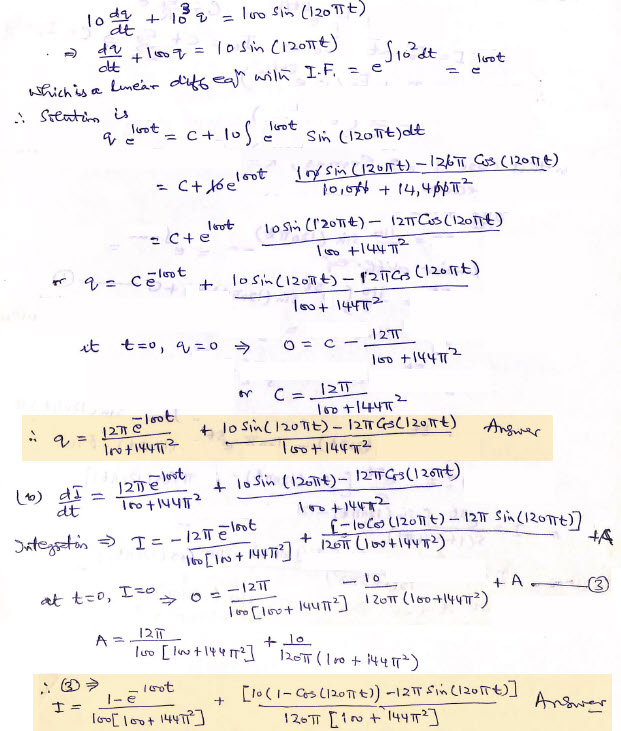 10 dq/dt + 10³ q = 100 sin (120πt)
⇒ dq/dt + 100q = 10 sin (120πt)
which is a linear diff eqⁿ with I.F. = e^∫10²dt = e^100t
∴ Solution is
q e^100t = C + 10∫ e^100t Sin (120πt)dt
= C + 10e^100t (100 Sin (120πt) − 120π Cos (120πt))/(10,000 + 14,400π²)
= C + e^100t (10 Sin (120πt) − 12π Cos (120πt))/(100 + 144π²)
or q = C e^-100t + (10 Sin (120πt) − 12π Cos (120πt))/(100 + 144π²)
at t=0, q=0 ⇒ 0 = C − 12π/(100 + 144π²)
or C = 12π/(100 + 144π²)
∴ q = 12π e^-100t/(100+144π²) + (10 Sin (120πt) − 12π Cos (120πt))/(100+144π²) Answer
(b) dI/dt = 12π e^-100t/(100+144π²) + (10 Sin (120πt) − 12π Cos (120πt))/(100+144π²)
Integration ⇒ I = −12π e^-100t/(100[100+144π²]) + [−10 Cos (120πt) − 12π Sin (120πt)]/(120π (100+144π²)) + A
at t=0, I=0 ⇒ 0 = −12π/(100[100+144π²]) − 10/(120π (100+144π²)) + A — (3)
A = 12π/(100 [100+144π²]) + 10/(120π (100 + 144π²))
∴ (3) ⇒
I = (1−e^-100t)/(100[100+144π²]) + [10(1−Cos (120πt)) − 12π Sin (120πt)]/(120π [100 + 144π²]) Answer